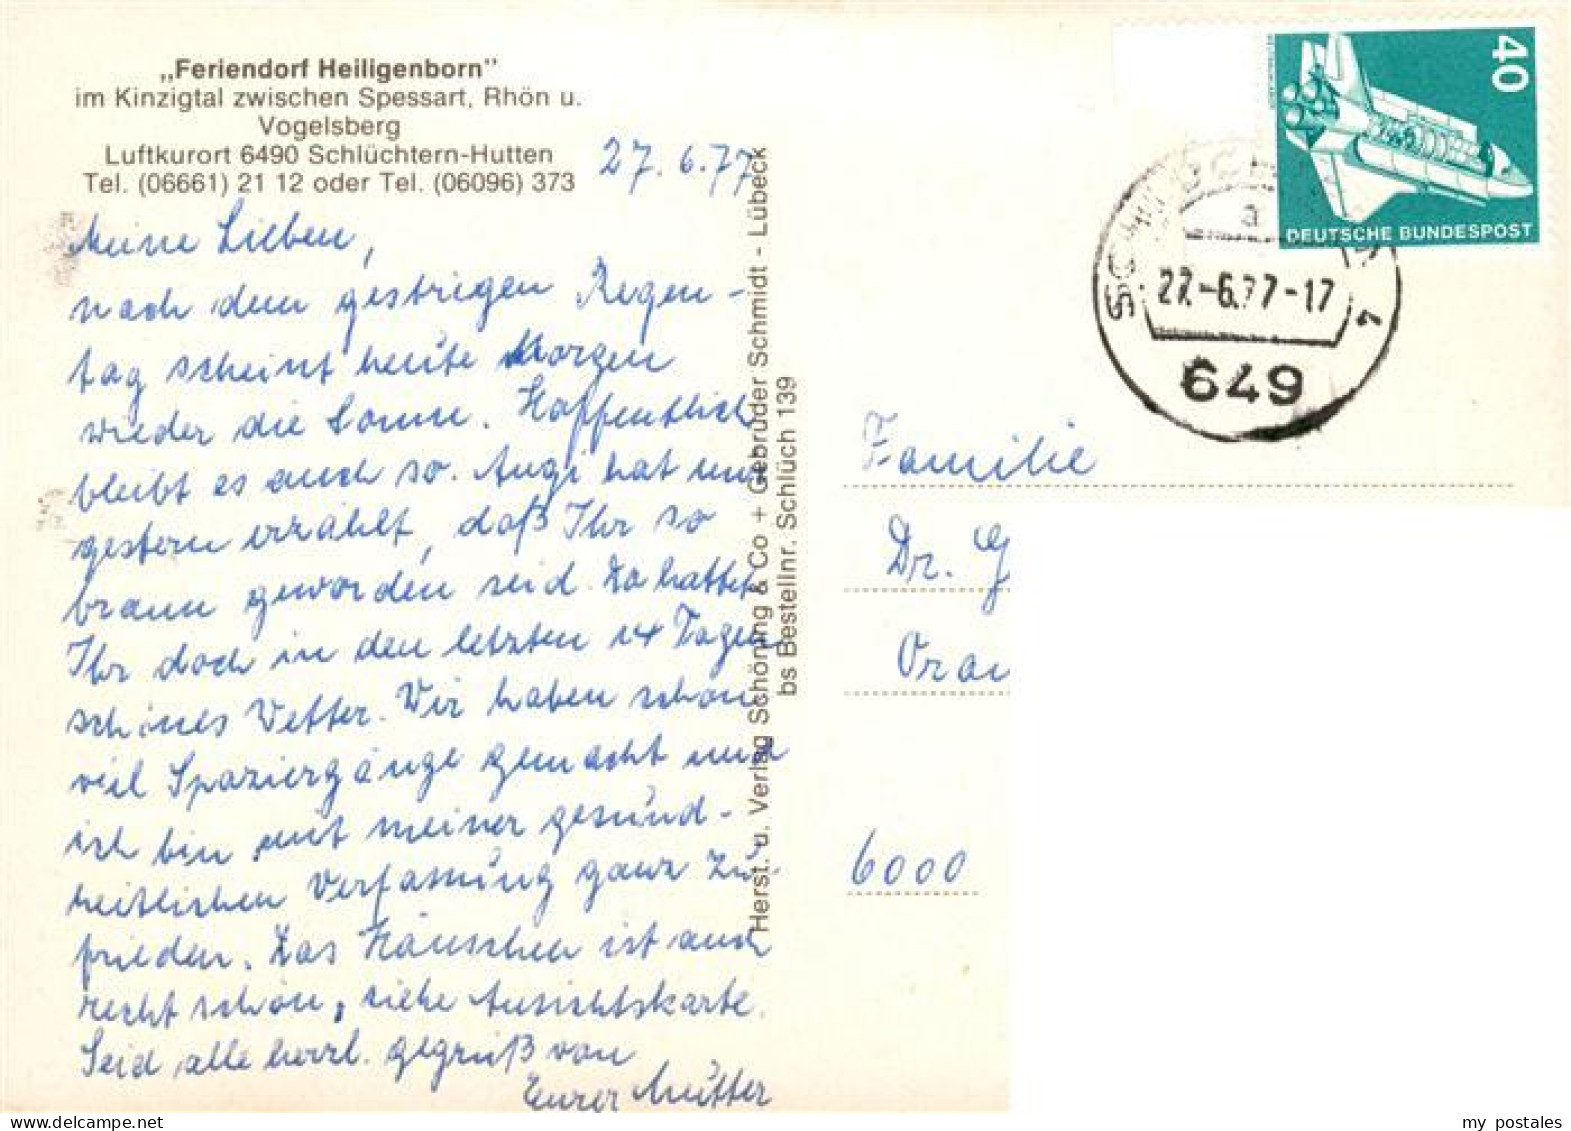 „Feriendorf Heiligenborn"
im Kinzigtal zwischen Spessart, Rhön u.
Vogelsberg
Luftkurort 6490 Schlüchtern-Hutten
Tel. (06661) 21 12 oder Tel. (06096) 373
27.6.77
Meine Lieben,
nach dem gestrigen Regen-
tag scheint heute Morgen
wieder die Sonne. Hoffentlich
bleibt es auch so. Angi hat uns
gestern erzählt, daß Ihr so
braun geworden seid. Da hattet
Ihr doch in den letzten 14 Tagen
schönes Wetter. Wir haben schon
viel Spaziergänge gemacht und
ich bin mit meiner gesund-
heitlichen Verfassung ganz zu-
frieden. Das Häuschen ist auch
recht schön, siehe Ansichtskarte.
Seid alle herzl. gegrüßt von
Eurer Mutter
Herst. u. Verlag Schöning & Co + Gebrüder Schmidt - Lübeck
bs Bestellnr. Schlüch 139
40
DEUTSCHE BUNDESPOST
a
27.-6.77-17
1
649
Familie
Dr. G
Oran
6000
my postales